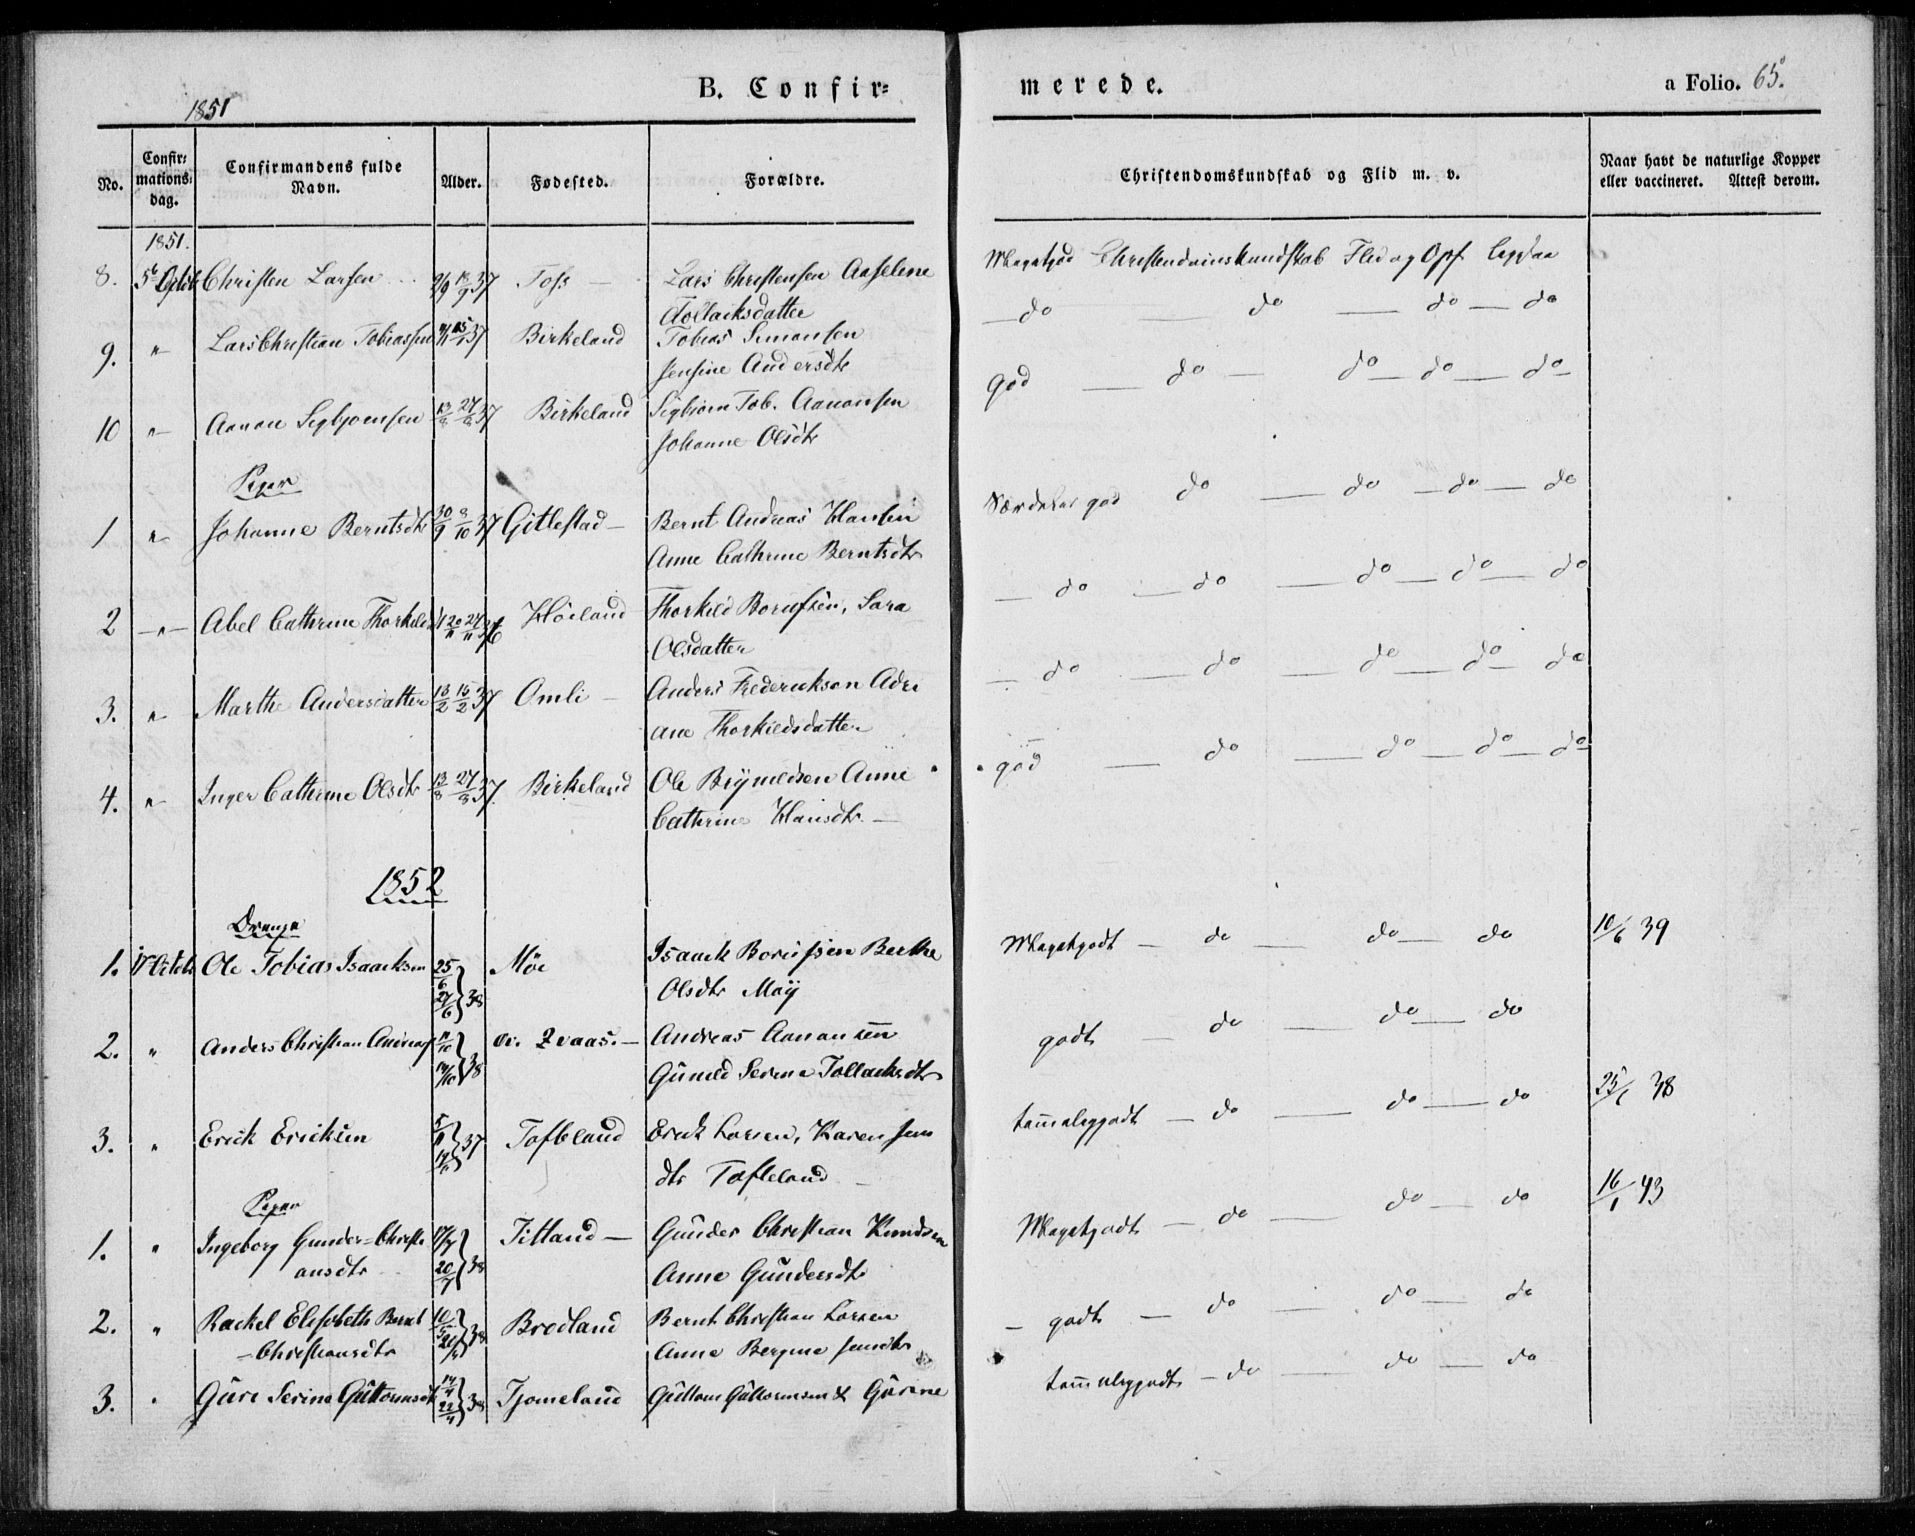 1851
B. Confir=
merede.
a Folio. 65.
No.
Confir=
mations=
dag.
Confirmandens fulde
Navn.
Alder.
Fødested.
Forældre.
Christendomskundskab og Flid m. v.
Naar havt de naturlige Kopper
eller vaccineret. Attest derom.
1851.
8. 5t Christen Larsen 37 Foss — Lars Christensen Aaselene
Tollacksdatter
Christendomskundskab Flid og Opf.
— do — do — do — do
9. " Lars Christian Tobiassen 37 Birkeland Tobias Simonsen
Jensine Andersdtr
God — do — do — do — do
10 " Aanon Sigbjornsen 37 Birkeland Sigbjorn Tob. Aanonsen
Johanne Olsdtr
Piger
do — do — do — do
1 " Johanne Berntsdtr 30/9 37 Gitlestad — Bernt Andreas Hansen
Anne Cathrine Berntsdtr
— do — do — do — do — do
2 — " — Abel Cathrine 36 Høiland Thorkild, Sara
Olsdatter
— do — do — do — do — do
3. " Marthe Andersdatter 13/2 15/2 37 Omli — Anders Frederickson Adri
ane Thorkildsdatter
god — do — do — do — do
4. " Inger Cathrine Olsdtr 13/8 27/8 37. Birkeland Ole Anne
Cathrine Hansdtr. —
1852
Drenge
1. Octobr Ole Tobias Isaacksen 25/6 27/6 } 38 Møe Isaack Berthe
Olsdtr Møÿ
Megetgodt — do — do — do
10/6 39
2. " Anders Christian 38 Andreas Aanonsen
Gunild Serine Tollacksdtr
godt — do — do — do
3. " Erick Ericksen 37 Tofteland Erick Larsen, Karen Jens
dtr Tofteland —
temmeliggodt — do — do — do
38
Piger
1. " Ingeborg Gunder=Christi
ansdtr 38 Titland — Gunder Christian Knudsen
Anne Gundersdtr
Megetgodt — do — do — do
16/1 43
2. " Rackel Elisabeth Bernt
— Christiansdtr 38 Brodland Bernt Christian Larsen
Anne Jensdtr
— godt — do — do — do
3. " Guri Serine Guttormsdtr 38 Tjomeland Guttorm Guttormsen &
temmeliggodt — do — do — do